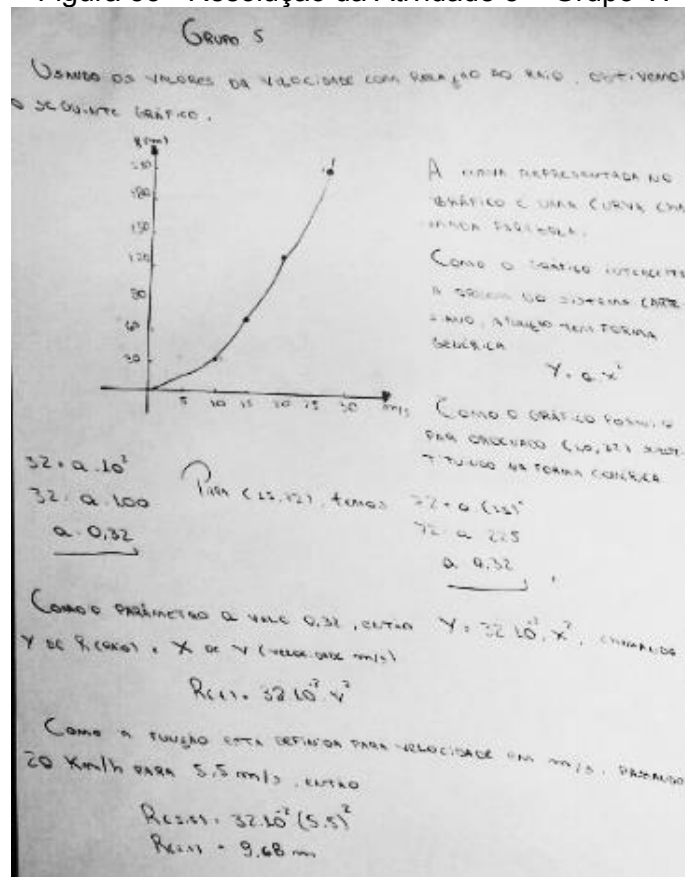 GRUPO 5
USANDO OS VALORES DA VELOCIDADE COM RELAÇÃO AO RAIO, OBTIVEMOS
O SEGUINTE GRÁFICO.
R(m)
180
150
120
90
60
30
5 10 15 20 25 30 m/s
A CURVA REPRESENTADA NO
GRÁFICO É UMA CURVA CHA
MADA PARÁBOLA.
COMO O GRÁFICO INTERCEPTA
A ORIGEM DO SISTEMA CARTE
SIANO, A FUNÇÃO TEM FORMA
GENÉRICA
Y = a x²
COMO O GRÁFICO POSSUI O
PAR ORDENADO (10,32)
NA FORMA GENÉRICA
32 = a.10²
32 = a.100
a = 0,32
PARA (15,72), temos 72 = a (15)²
72 = a 225
a = 0,32
COMO O PARÂMETRO a VALE 0,32, ENTÃO Y = 32 10⁻² . X², CHAMANDO
Y DE R (RAIO) E X DE V (VELOCIDADE m/s)
= 32.10⁻² v²
COMO A FUNÇÃO ESTA DEFINIDA PARA VELOCIDADE EM m/s, PASSANDO
20 Km/h PARA 5,5 m/s, ENTÃO
= 32.10⁻² (5,5)²
= 9,68 m